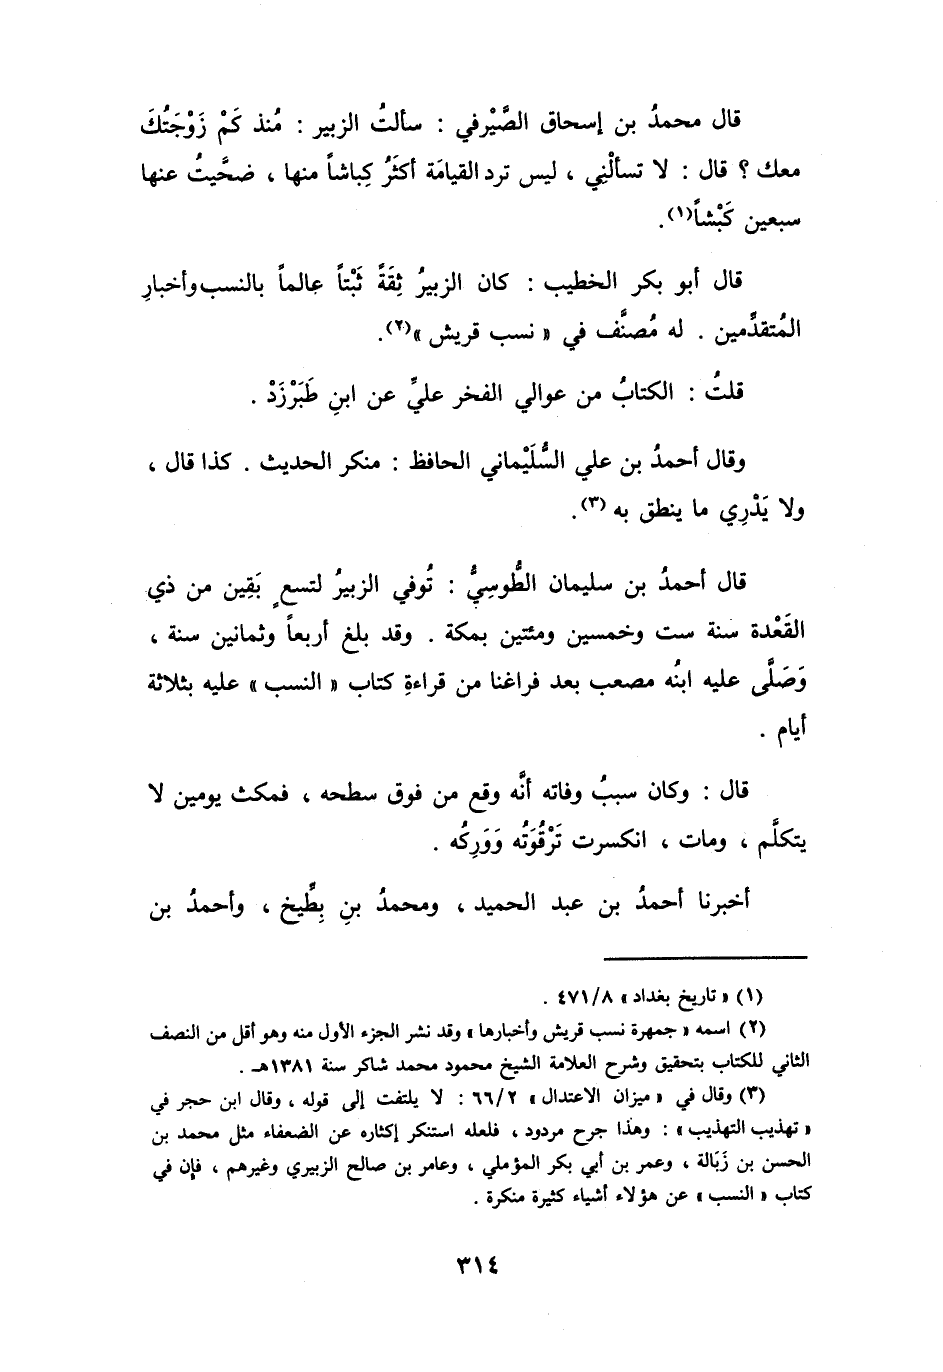 قال محمدُ بن إسحاق الصَّيْرفي : سألتُ الزبير : مُنذ كَمْ زَوْجَتُكَ
معك ؟ قال : لا تسألْنِي ، ليس ترد القيامَة أكثَرُ كِباشاً منها ، ضحَّيتُ عنها
سبعين كَبْشاً(١).
قال أبو بكر الخطيب : كان الزبيرُ ثِقَةً ثَبْتاً عالماً بالنسب وأخبارِ
المُتقدِّمين . له مُصنَّف في « نسب قريش »(٢).
قلتُ : الكتابُ من عوالي الفخر عليِّ عن ابنِ طَبَرْزَدْ .
وقال أحمدُ بن علي السُّلَيْماني الحافظ : منكر الحديث . كذا قال ،
ولا يَدْرِي ما ينطق به (٣).
قال أحمدُ بن سليمان الطُّوسِيُّ : تُوفي الزبيرُ لتسعٍ بَقِين من ذي
القَعْدة سنة ست وخمسين ومئتين بمكة . وقد بلغ أربعاً وثمانين سنة ،
وَصَلَّى عليه ابنُه مصعب بعد فراغنا من قراءةِ كتاب « النسب » عليه بثلاثة
أيام .
قال : وكان سببُ وفاته أنَّه وقع من فوق سطحه ، فمكث يومين لا
يتكلَّم ، ومات ، انكسرت تَرْقُوَتُه وَوَرِكُه .
أخبرنا أحمدُ بن عبد الحميد ، ومحمدُ بنِ بِطِّيخ ، وأحمدُ بن
(١) « تاريخ بغداد » ٤٧١/٨ .
(٢) اسمه « جمهرة نسب قريش وأخبارها » وقد نشر الجزء الأول منه وهو أقل من النصف
الثاني للكتاب بتحقيق وشرح العلامة الشيخ محمود محمد شاكر سنة ١٣٨١هـ .
(٣) وقال في « ميزان الاعتدال » ٦٦/٢ : لا يلتفت إلى قوله ، وقال ابن حجر في
« تهذيب التهذيب » : وهذا جرح مردود ، فلعله استنكر إكثاره عن الضعفاء مثل محمد بن
الحسن بن زَبَالة ، وعمر بن أبي بكر المؤملي ، وعامر بن صالح الزبيري وغيرهم ، فإن في
كتاب « النسب » عن هؤلاء أشياء كثيرة منكرة .
٣١٤